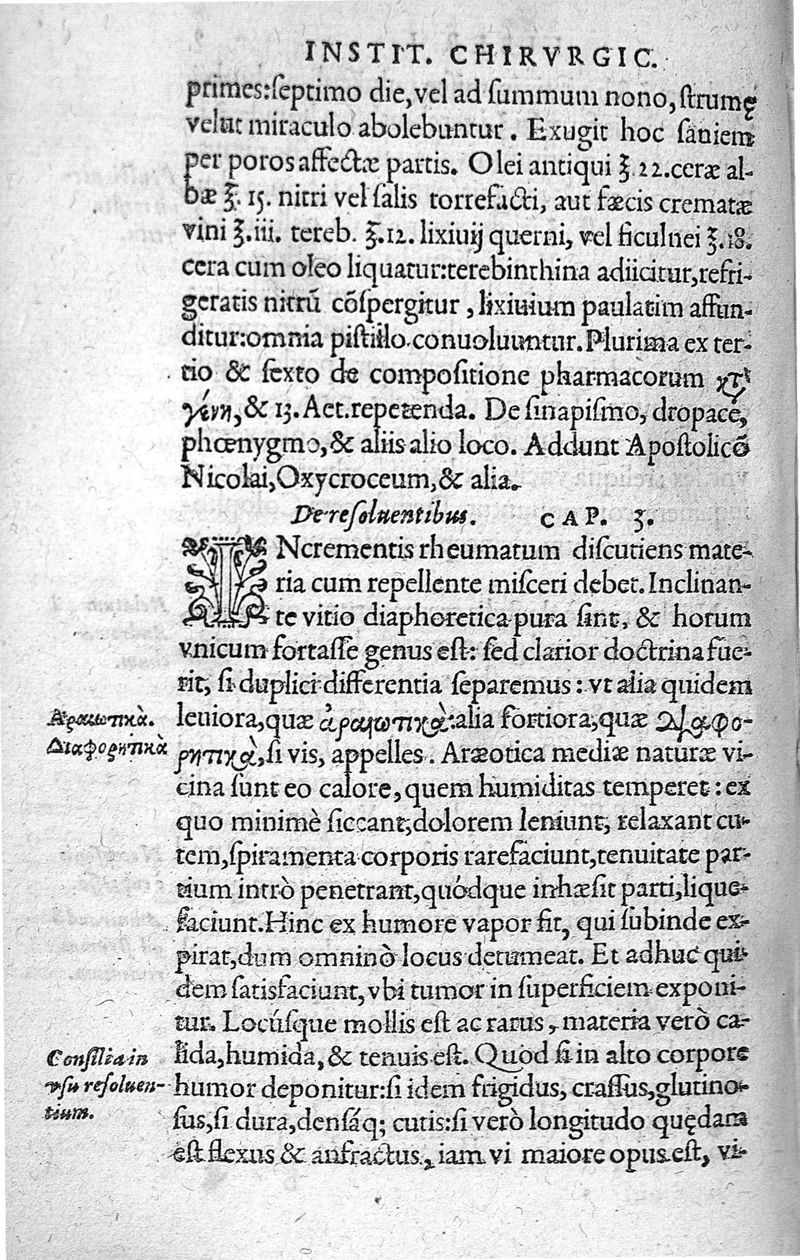 INSTIT. CHIRVRGIC.
primes:ſeptimo die,vel ad ſummum nono,ſtrumę
velut miraculo abolebuntur. Exugit hoc ſaniem
per poros affectæ partis. Olei antiqui ℥.22.ceræ al-
bæ ℥.15. nitri vel ſalis torrefacti, aut fæcis crematæ
vini ℥.iii. tereb. ℥.12. lixiuij querni, vel ficulnei ℥.18.
cera cum oleo liquatur:terebinthina adiicitur,refri-
geratis nitrū cōſpergitur, lixiuium paulatim affun-
ditur:omnia piſtillo conuoluuntur.Plurima ex ter-
tio & ſexto de compoſitione pharmacorum κτ̀
γένη,& 13.Aet.repetenda. De ſinapiſmo, dropace,
phœnygmo,& aliis alio loco. Addunt Apoſtolicō
Nicolai,Oxycroceum,& alia.
De reſoluentibus. CAP. 3.
INcrementis rheumatum diſcutiens mate-
ria cum repellente miſceri debet. Inclinan-
te vitio diaphoretica pura ſint, & horum
vnicum fortaſſe genus eſt: ſed clarior doctrina fue-
rit, ſi duplici differentia ſeparemus: vt alia quidem
Αραιωτικὰ.
leuiora,quæ ἀραιωτικὰ:alia fortiora,quæ διαφο-
Διαφορητικὰ
ρητικὰ,ſi vis, appelles. Aræotica mediæ naturæ vi-
cina ſunt eo calore, quem humiditas temperet: ex
quo minimè ſiccant,dolorem leniunt, relaxant cu-
tem,ſpiramenta corporis rarefaciunt,tenuitate par-
tium intrò penetrant,quódque inhæſit parti,lique-
faciunt.Hinc ex humore vapor fit, qui ſubinde ex-
pirat,dum omninò locus detumeat. Et adhuc qui-
dem ſatisfaciunt, vbi tumor in ſuperficiem exponi-
tur. Locúſque mollis eſt ac rarus, materia verò ca-
Conſilia in
lida,humida, & tenuis eſt. Quod ſi in alto corpore
vſu reſoluen-
humor deponitur:ſi idem frigidus, craſſus,glutino-
tium.
ſus,ſi dura,denſáq; cutis:ſi verò longitudo quędam
eſt flexus & anfractus, iam vi maiore opus eſt, vi-